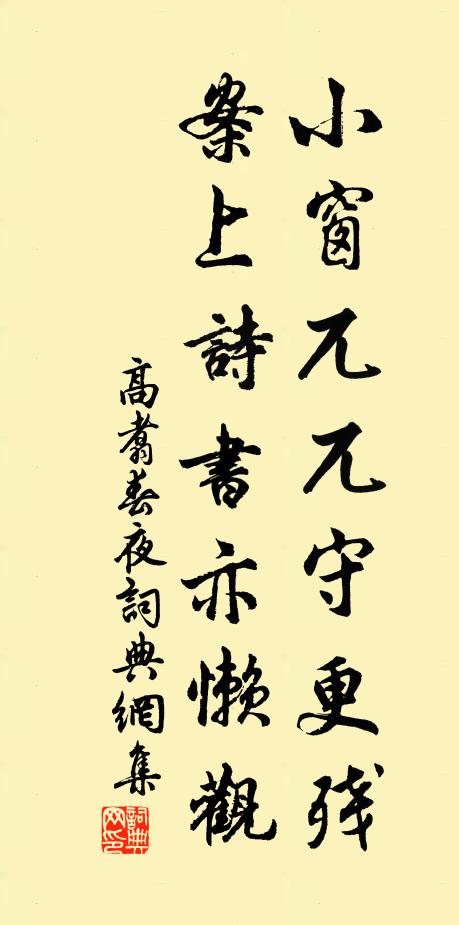 小窗兀兀守更残
案上詩書亦懶觀
高翥春夜詞典網集
詞典网印